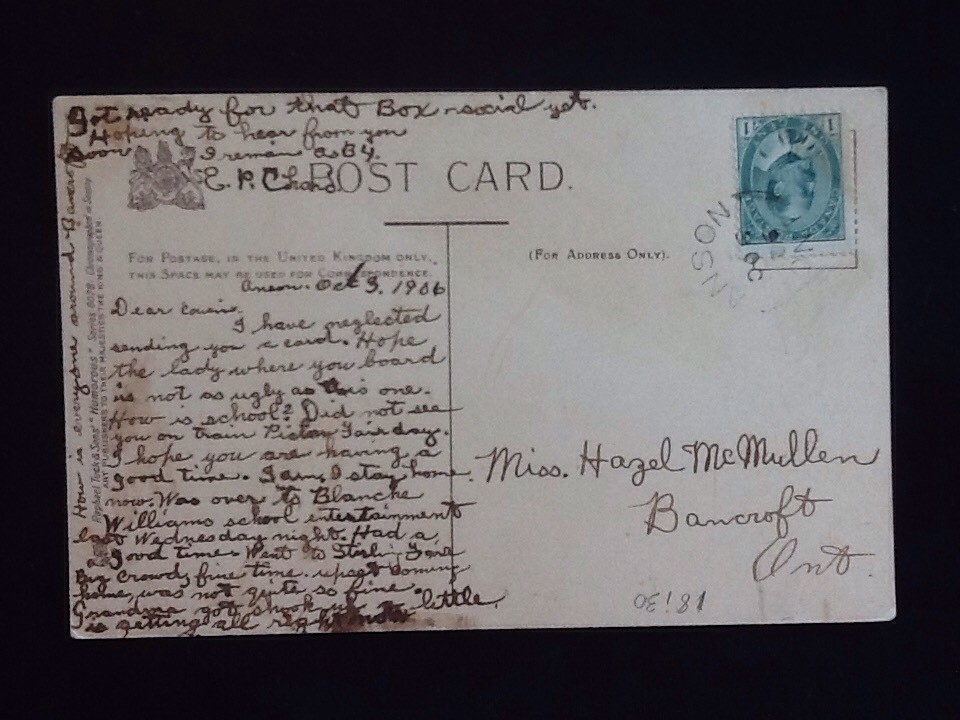 Got ready for that Box social yet.
Hoping to hear from you
soon I remain as By.
E. P. Chard
POST CARD.
FOR POSTAGE, IN THE UNITED KINGDOM ONLY,
THIS SPACE MAY BE USED FOR CORRESPONDENCE.
(FOR ADDRESS ONLY).
Anson. Oct 3, 1906
Dear Cousin.
I have neglected
sending you a card. Hope
the lady where you board
is not as ugly as this one.
How is school? Did not see
you on train Picton Fair day.
I hope you are having a
good time. I am, I stay home
now. Was over to Blanche
Williams school entertainment
last Wednesday night. Had a
good time. Went to Stirling Fair
Big crowd, fine time. upset coming
home, was not quite so fine.
Grandma got shook up a little.
is getting all right now
How is everyone around Bancroft
Raphael Tuck & Sons' "Humorous" Series
ART PUBLISHERS TO THEIR MAJESTIES THE KING & QUEEN.
Miss. Hazel McMullen
Bancroft
Ont.
1 1
ANSON
OC
18:30